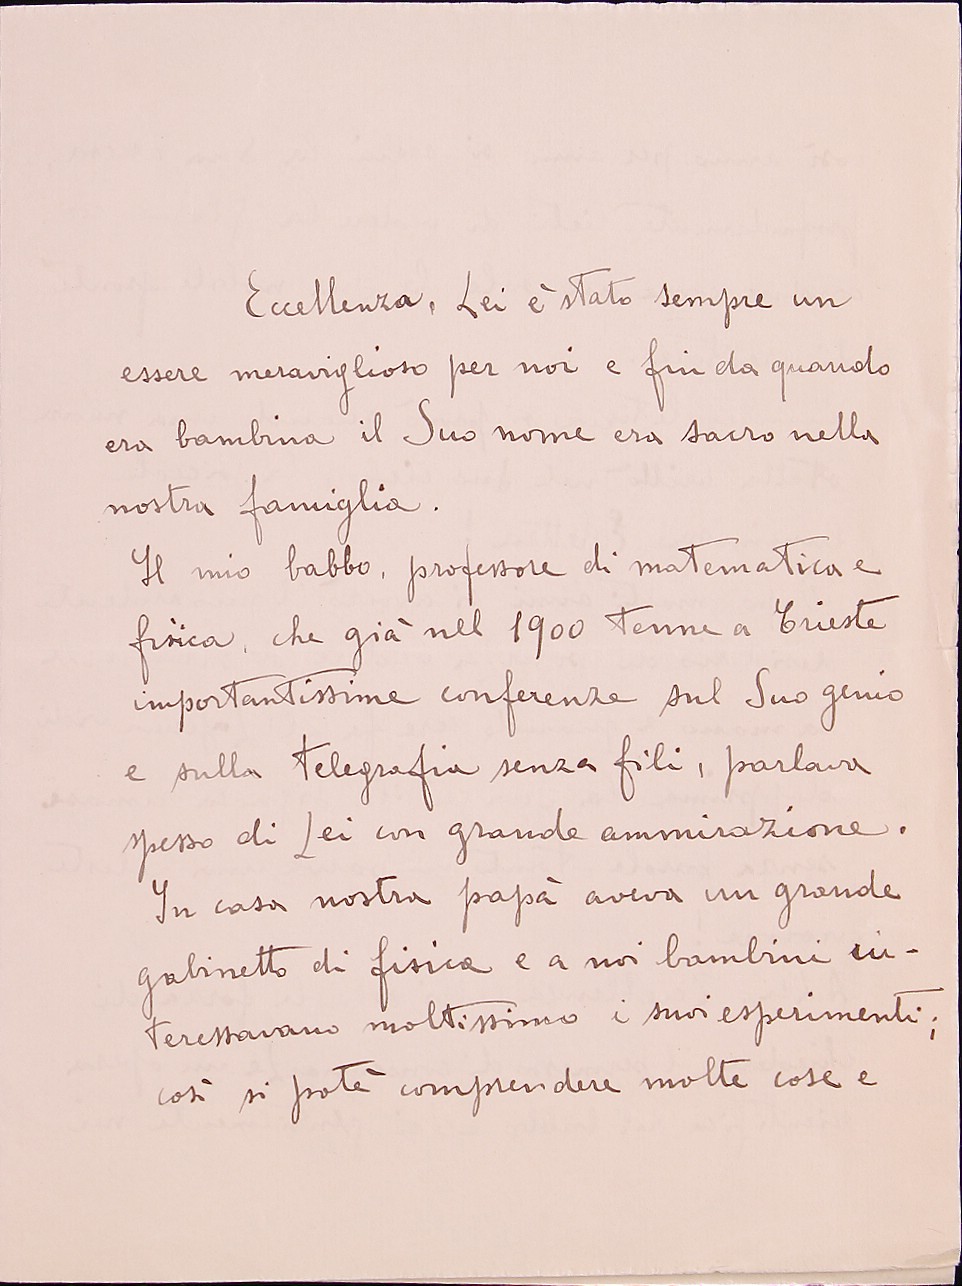 Eccellenza, Lei è stato sempre un
essere meraviglioso per noi e fin da quando
era bambina il Suo nome era sacro nella
nostra famiglia.
Il mio babbo, professore di matematica e
fisica, che già nel 1900 tenne a Trieste
importantissime conferenze sul Suo genio
e sulla telegrafia senza fili, parlava
spesso di Lei con grande ammirazione.
In casa nostra papà aveva un grande
gabinetto di fisica e a noi bambini in-
teressavano moltissimo i suoi esperimenti;
così si potè comprendere molte cose e